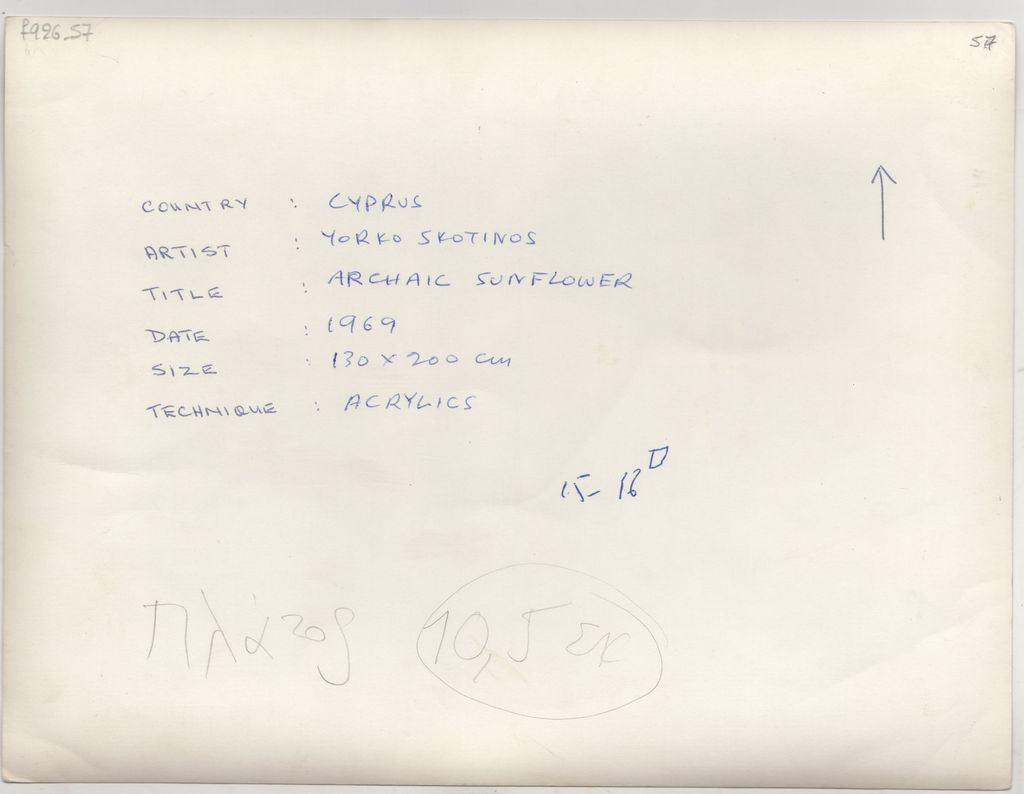 f926_57
57
COUNTRY : CYPRUS
ARTIST : YORKO SKOTINOS
TITLE : ARCHAIC SUNFLOWER
DATE : 1969
SIZE : 130 x 200 cm
TECHNIQUE : ACRYLICS
15-16
Πλάτος 10,5 εκ